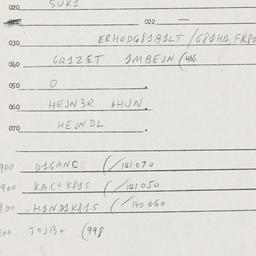 020 SUK1
022 —
030 ERHODG81B1LT / G81HA, FR81
040 GR1ZET 1MBEJN (466
050 0
060 HEJN3R 1HJN.
070 HEJNDL
900 D1GANC (/141 070
900 KAC+K815 (/141 050
H1ND1K815 (/140 060
TOJB+ (998